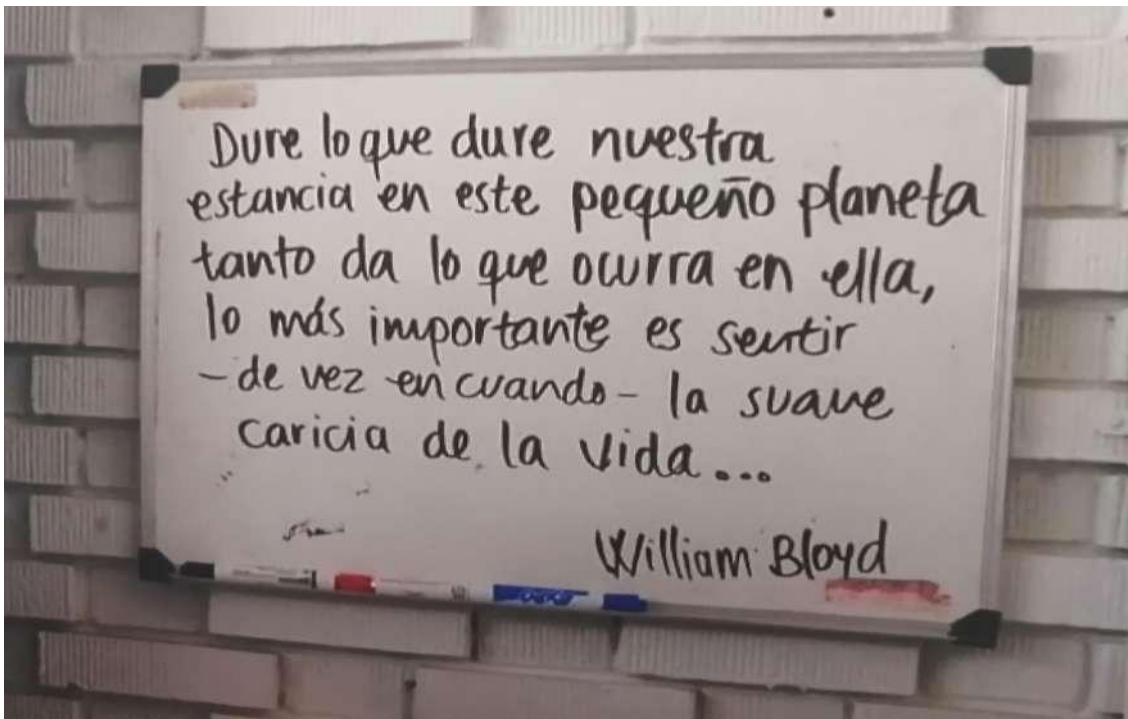 Dure lo que dure nuestra
estancia en este pequeño planeta
tanto da lo que ocurra en ella,
lo más importante es sentir
- de vez en cuando - la suave
caricia de la vida...
William Bloyd